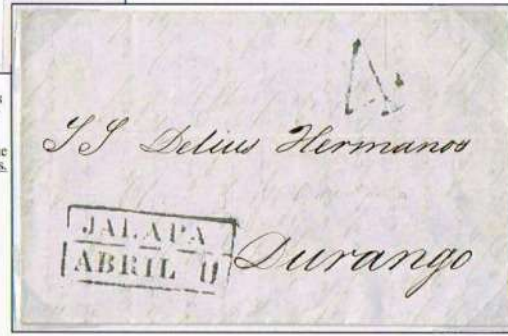 A
SS Delius Hermanos
JALAPA
ABRIL 11
Durango